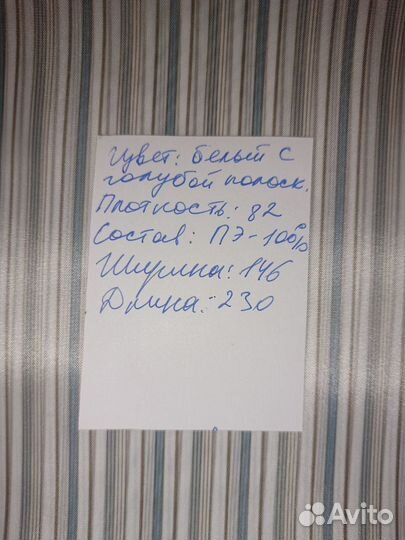 Цвет: белый с
голубой полоск.
Плотность: 82
Состав: ПЭ-100%
Ширина: 146
Длина: 230
Avito